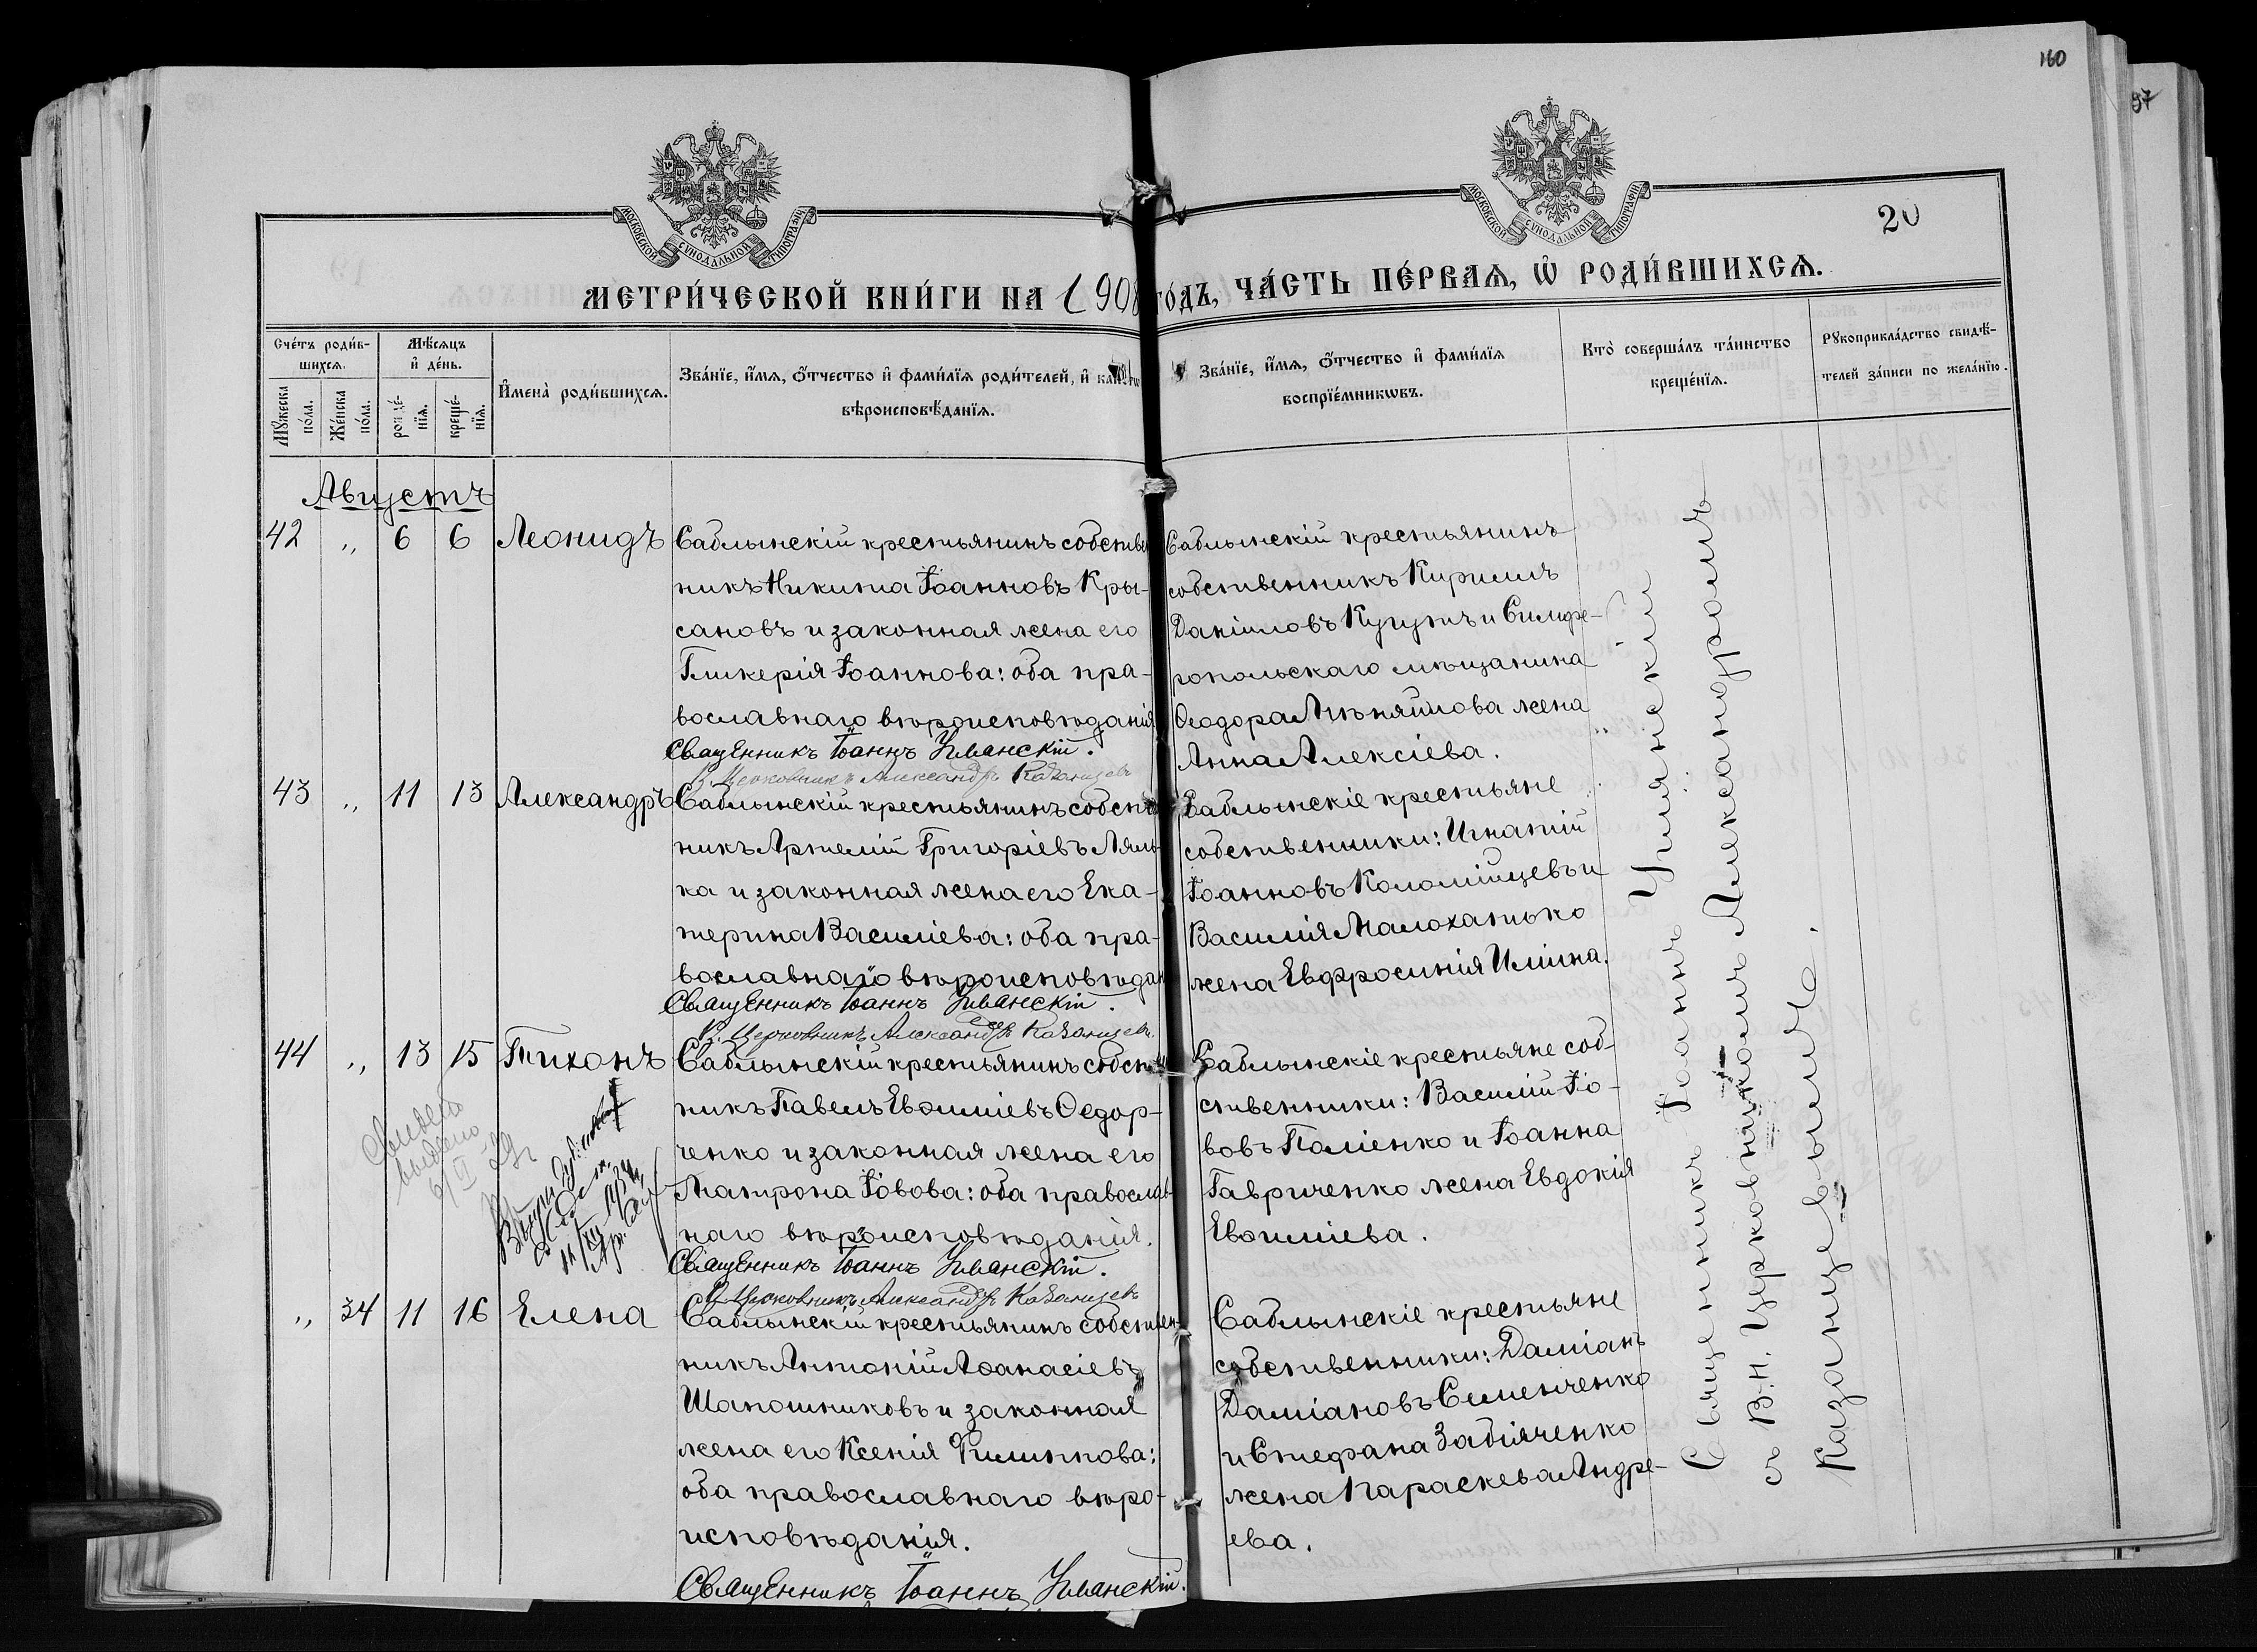 160
97
МОСКОВСКОЙ СѴНОДАЛЬНОЙ ТИПОГРАФІИ
МОСКОВСКОЙ СѴНОДАЛЬНОЙ ТИПОГРАФІИ
20
МЕТРИ́ЧЕСКОЙ КНИ́ГИ НА 1908 ГО́ДЪ, ЧА́СТЬ ПЕ́РВАѦ, Ѡ҆ РОДИ́ВШИХСѦ.
Сче́тъ роди́в-
шихсѧ.
Мꙋ́жеска по́ла.
Же́нска по́ла.
Мѣ́сѧцъ
и҆ де́нь.
рожде́-
нїѧ.
креще́-
нїѧ.
И҆мена̀ роди́вшихсѧ.
Зва́нїе, и҆́мѧ, ѻ҆́тчество и҆ фами́лїѧ роди́телей, и҆
вѣроисповѣ́данїѧ.
Зва́нїе, и҆́мѧ, ѻ҆́тчество и҆ фами́лїѧ
воспрїе́мникѡвъ.
Кто̀ соверша́лъ та́инство
креще́нїѧ.
Рꙋкоприкла́дство свидѣ́-
телей за́писи по жела́нїю.
Августъ
42 " 6 6 Леонидъ
Саблынскій крестьянинъ собствен
никъ Никита Іоанновъ Кры-
сановъ и законная жена его
Гликерія Іоаннова: оба пра-
вославнаго вѣроисповѣданія
Священникъ Іоаннъ Уманскій.
В. Церковникъ Александръ Казанцевъ
Саблынскій крестьянинъ
собственникъ Кириллъ
Даніиловъ Кугутъ и Симфе-
ропольскаго мѣщанина
Ѳеодора жена
Анна Алексіева.
43 " 11 13 Александръ
Саблынскій крестьянинъ собств
никъ Артемій Григоріевъ Ляль-
ка и законная жена его Ека-
терина Василіева: оба пра-
вославнаго вѣроисповѣдан
Священникъ Іоаннъ Уманскій.
В. Церковникъ Александръ Казанцевъ
Саблынскіе крестьяне
собственники: Игнатій
Іоанновъ Коломійцевъ и
Василія Малохатько
жена Евфросинія Иліина.
44 " 13 15 Тихонъ
Саблынскій крестьянинъ собств
никъ Павелъ Евѳиміевъ Ѳедор-
ченко и законная жена его
Матрона Іовова: оба православ
наго вѣроисповѣданія.
Священникъ Іоаннъ Уманскій.
В. Церковникъ Александръ Казанцевъ
Саблынскіе крестьяне соб-
ственники: Василій Іо-
вовъ Паліенко и Іоанна
Гавриченко жена Евдокія
Евѳиміева.
" 34 11 16 Елена
Саблынскій крестьянинъ собствен
никъ Антоній Аѳанасіевъ
Шапошниковъ и законная
жена его Ксенія Филиппова:
оба православнаго вѣро-
исповѣданія.
Священникъ Іоаннъ Уманскій.
Саблынскіе крестьяне
собственники: Даміанъ
Даміановъ Семенченко
и Стефана Забіяченко
жена Параскева Андре-
ева.
Священникъ Іоаннъ Уманскій
съ В.Н. Церковникомъ Александромъ
Казанцевымъ.